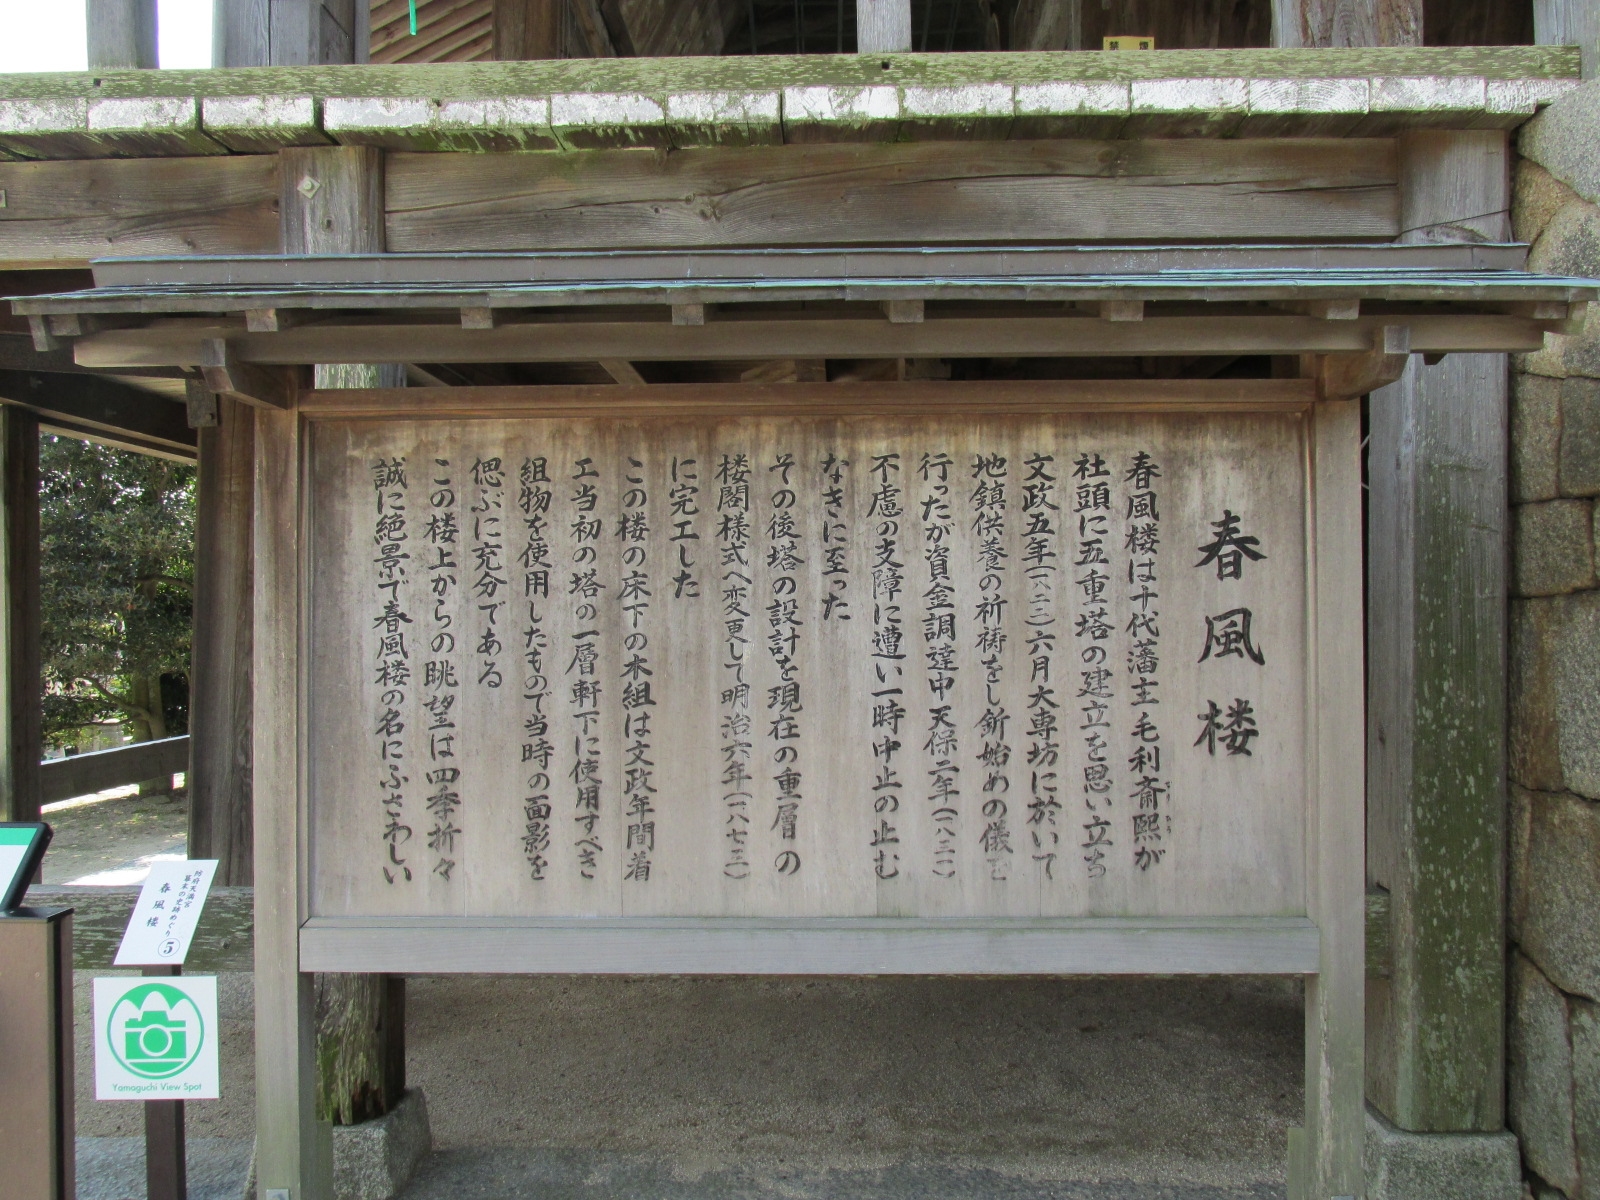 春風楼
春風楼は十代藩主毛利斉熙が
社頭に五重塔の建立を思い立ち
文政五年(一八二二)六月大専坊に於いて
地鎮供養の祈祷をし釿始めの儀を
行ったが資金調達中天保二年(一八三一)
不慮の支障に遭い一時中止の止む
なきに至った
その後塔の設計を現在の重層の
楼閣様式へ変更して明治六年(一八七三)
に完工した
この楼の床下の木組は文政年間着
工当初の塔の一層軒下に使用すべき
組物を使用したもので当時の面影を
偲ぶに充分である
この楼上からの眺望は四季折々
誠に絶景で春風楼の名にふさわしい
防府天満宮
幕末の史跡めぐり
春風楼
5
Yamaguchi View Spot